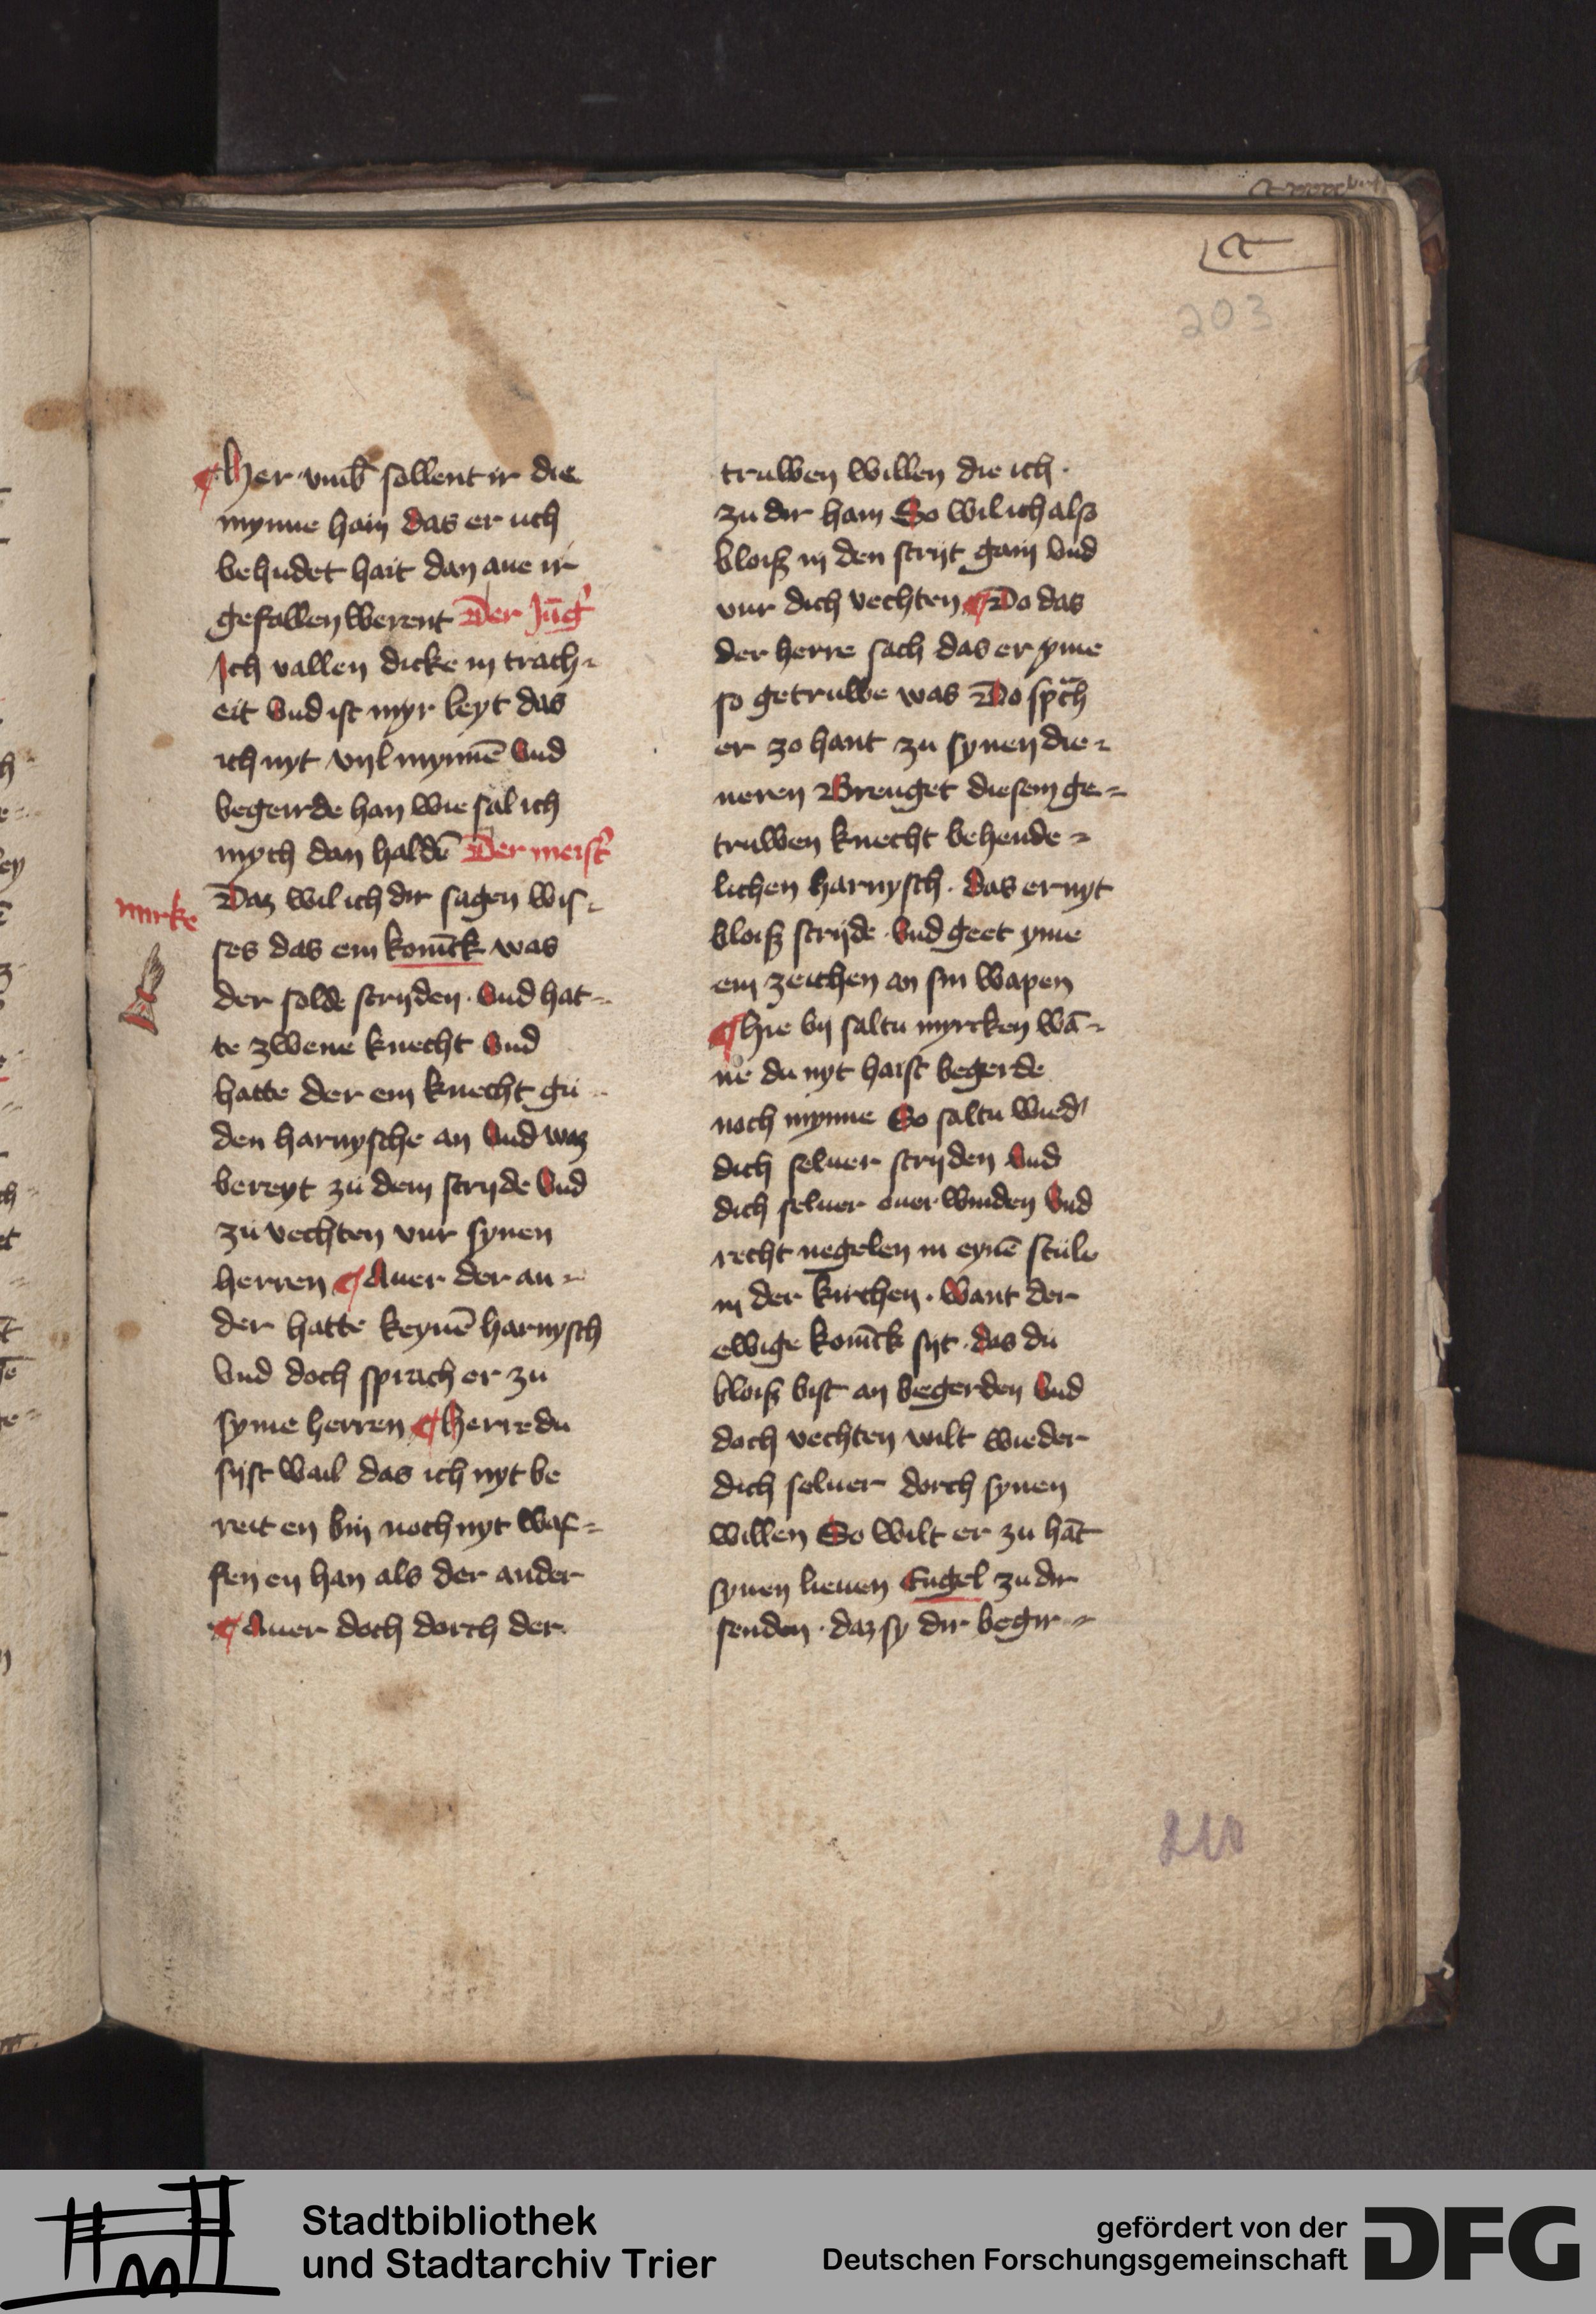 203
¶ Her vmb sollent ir die
mynne hain das er uch
behudet hait dan ane ir
gefallen werent Der Jūg'
Ich vallen dicke in trach-
eit vnd ist myr leyt das
ich nyt vyl mynnē vnd
begeirde han wie sal ich
mych dan haldē Der meist'
mirke
Daz wil ich dir sagen wis-
ses das ein konīck was
der solde stryden · vnd hat-
te zwene knecht vnd
hatte der ein knecht gu
den harnysche an vnd waz
bereyt zu dem stryde vnd
zu vechten vur synen
herren ¶ Auer der an-
der hatte keynē harnysch
vnd doch sprach er zu
syme herren ¶ Herre du
sijst wail das ich nyt be
reit en bin noch nyt waf-
fen en han als der ander
¶ Auer doch dorch der
truwen willen die ich ·
zu dir hain So wil ich also
bloiß in den strijt gain vnd
vur dich vechten ¶ Do das
der herre sach das er yme
so getruwe was Do sprach
er zo hant zu synen die-
neren Brenget diesem ge-
truwen knecht behende-
lichen harnysch · das er nyt
bloiß strijde · vnd geet yme
ein zeichen an sin wapen
¶ Hie by saltu myrcken wā-
ne du nyt haist begerde
noch mynne So saltu wied'
dich seluer stryden vnd
dich seluer ouerwinden vnd
recht negelen in eynē stule
in der kirchen · want der
ewige konīck sijt · das du
bloiß bist an begerden vnd
doch vechten wilt wieder
dich seluer dorch synen
willen So wilt er zu hāt
synen lieuen Engel zu dir
senden · daz sy dir begir-
210
Stadtbibliothek
und Stadtarchiv Trier
gefördert von der
Deutschen Forschungsgemeinschaft
DFG